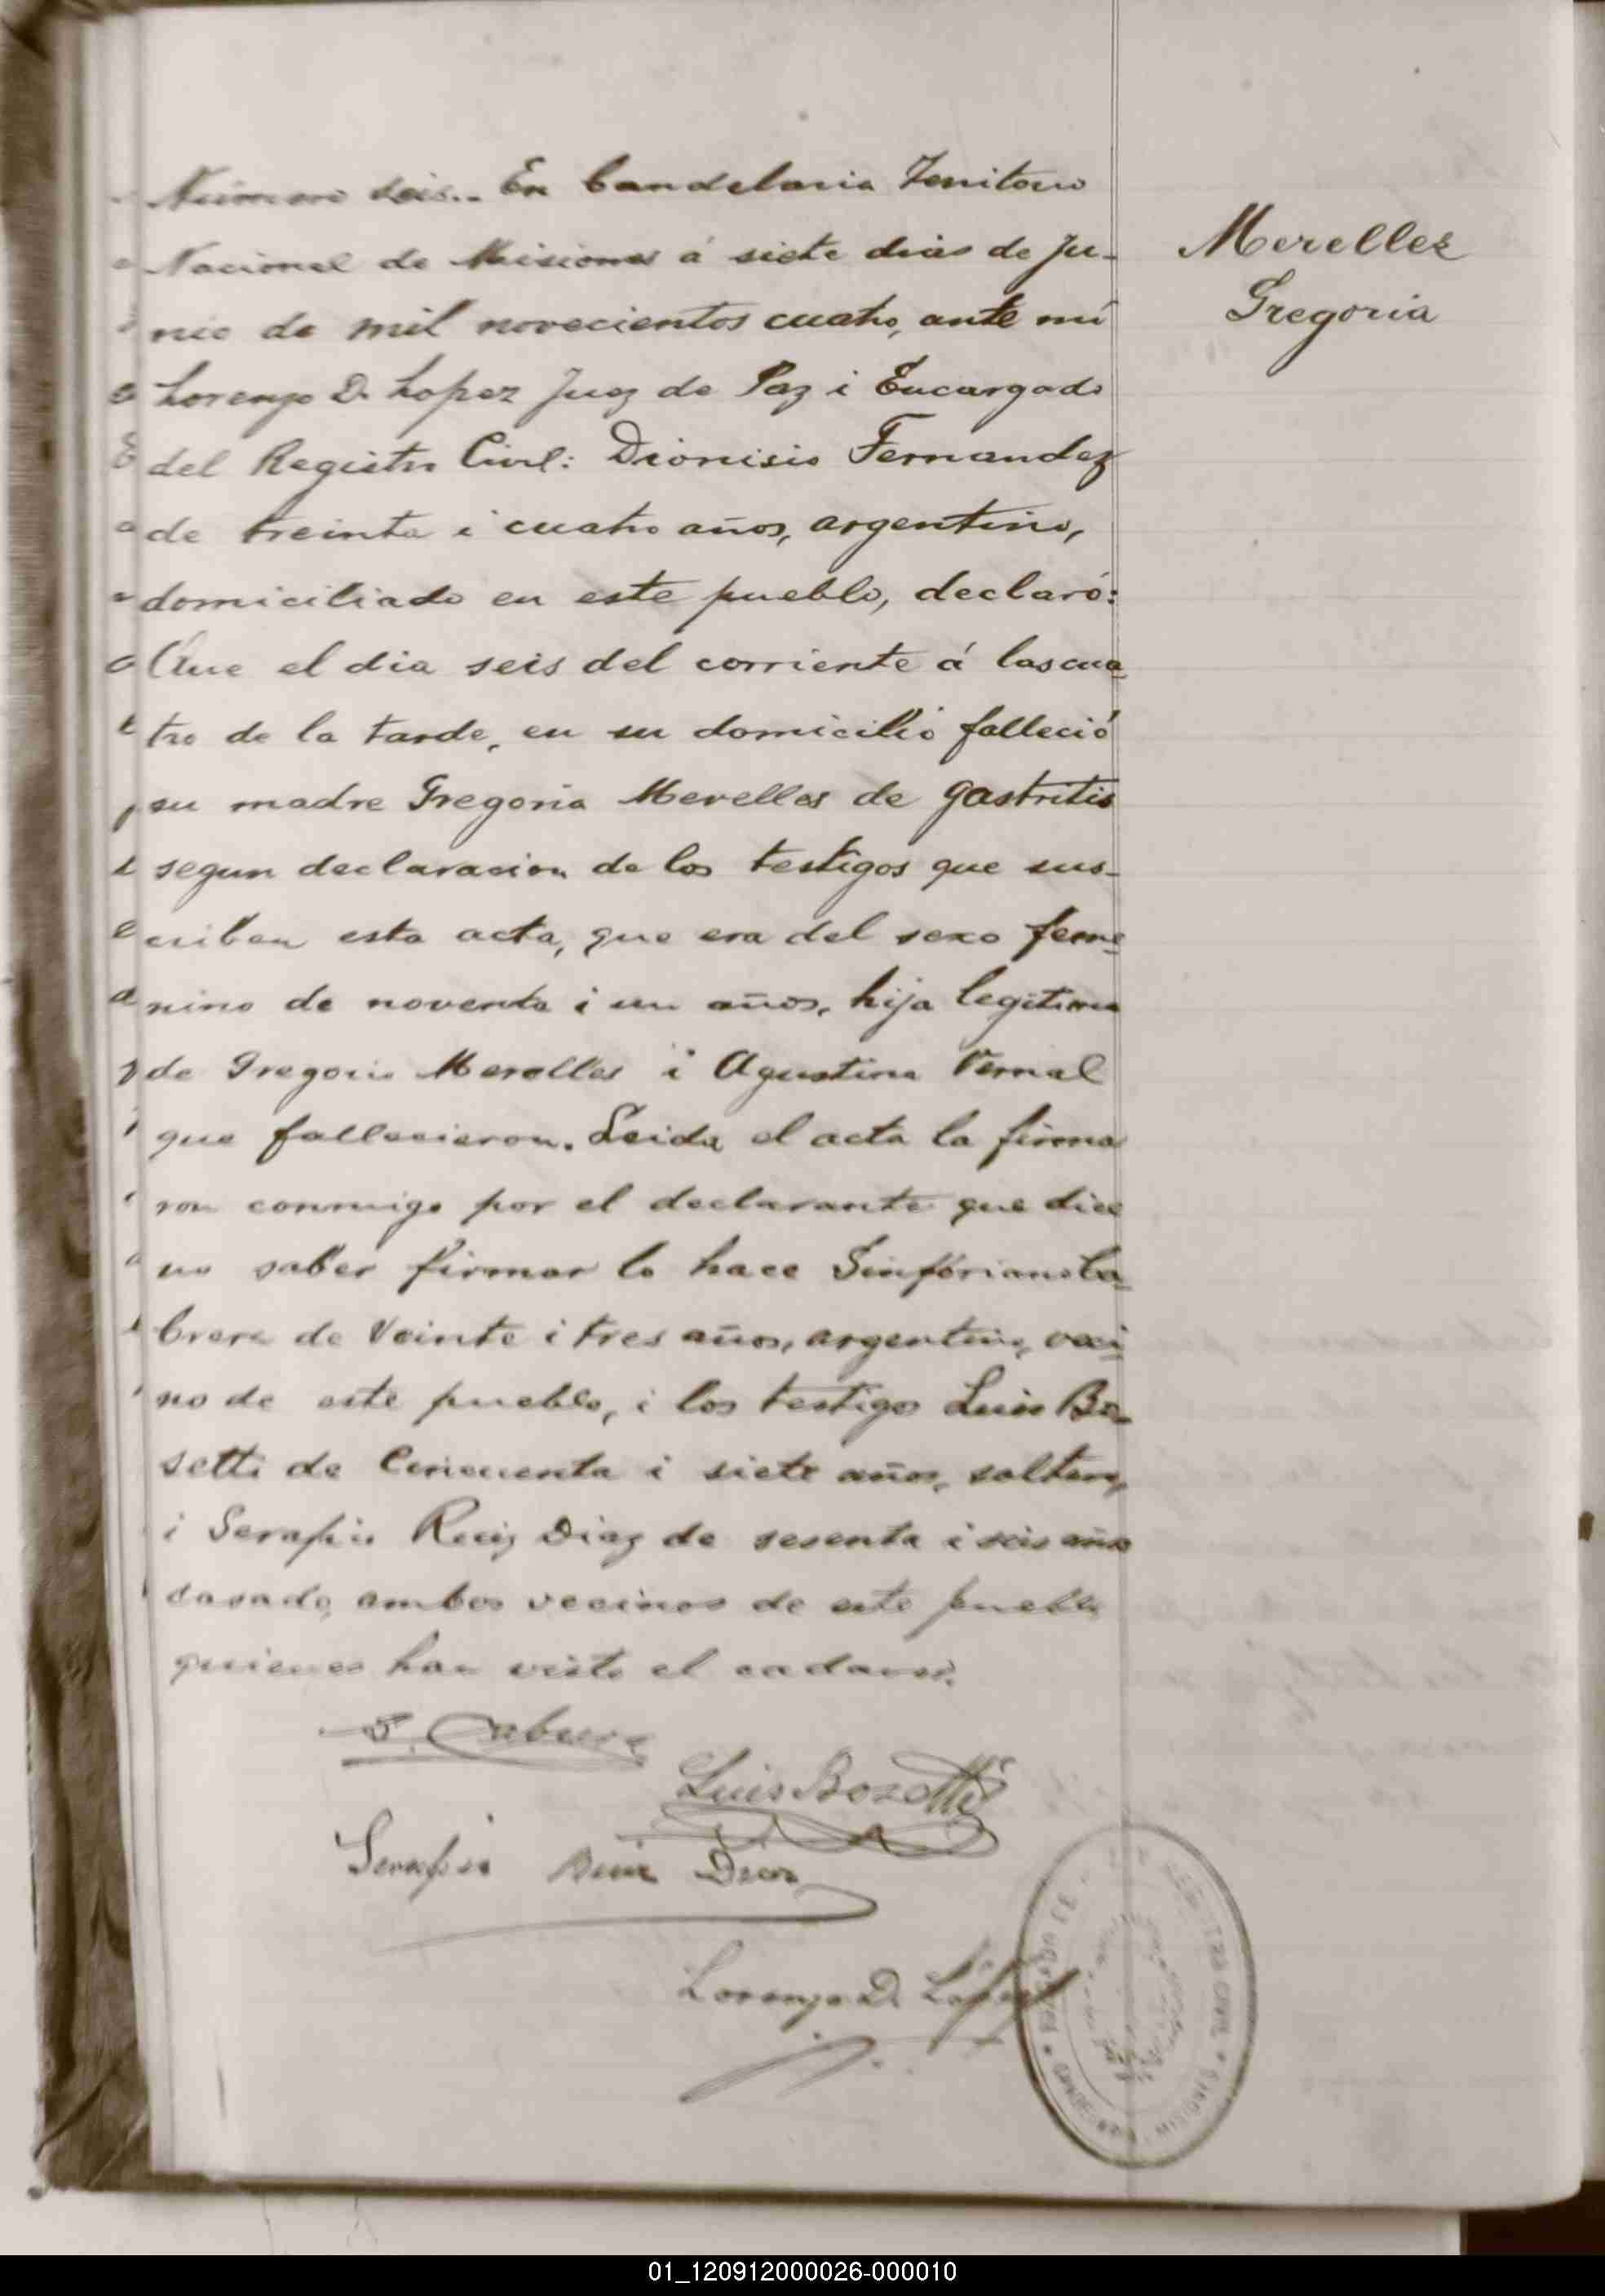 Número seis.. En Candelaria Territorio
Nacional de Misiones á siete dias de Ju-
nio de mil novecientos cuatro, ante mí
Lorenzo D. Lopez Juez de Paz i Encargado
del Registro Civil: Dionisio Fernandez
de treinta i cuatro años, argentino,
domiciliado en este pueblo, declaró:
Que el dia seis del corriente á las cua
tro de la tarde, en su domicilio falleció
su madre Gregoria Merelles de gastritis
segun declaracion de los testigos que sus-
criben esta acta, que era del sexo feme
nino de noventa i un años, hija legitima
de Gregorio Merelles i Agustina
que fallecieron. Leida el acta la firma
ron conmigo por el declarante que dice
no saber firmar lo hace Sinforiano Ca-
brera de Veinte i tres años, argentino, veci
no de este pueblo, i los testigos Luis Bo-
setti de Cincuenta i siete años, soltero,
i Serafin Ruiz Diaz de sesenta i seis años
casado, ambos vecinos de este pueblo
quienes han visto el cadaver.
S. Cabrera
Luis Bozetti
Serafin Ruiz Diaz
Lorenzo D. López
Merelles
Gregoria
REGISTRO CIVIL
01_120912000026-000010